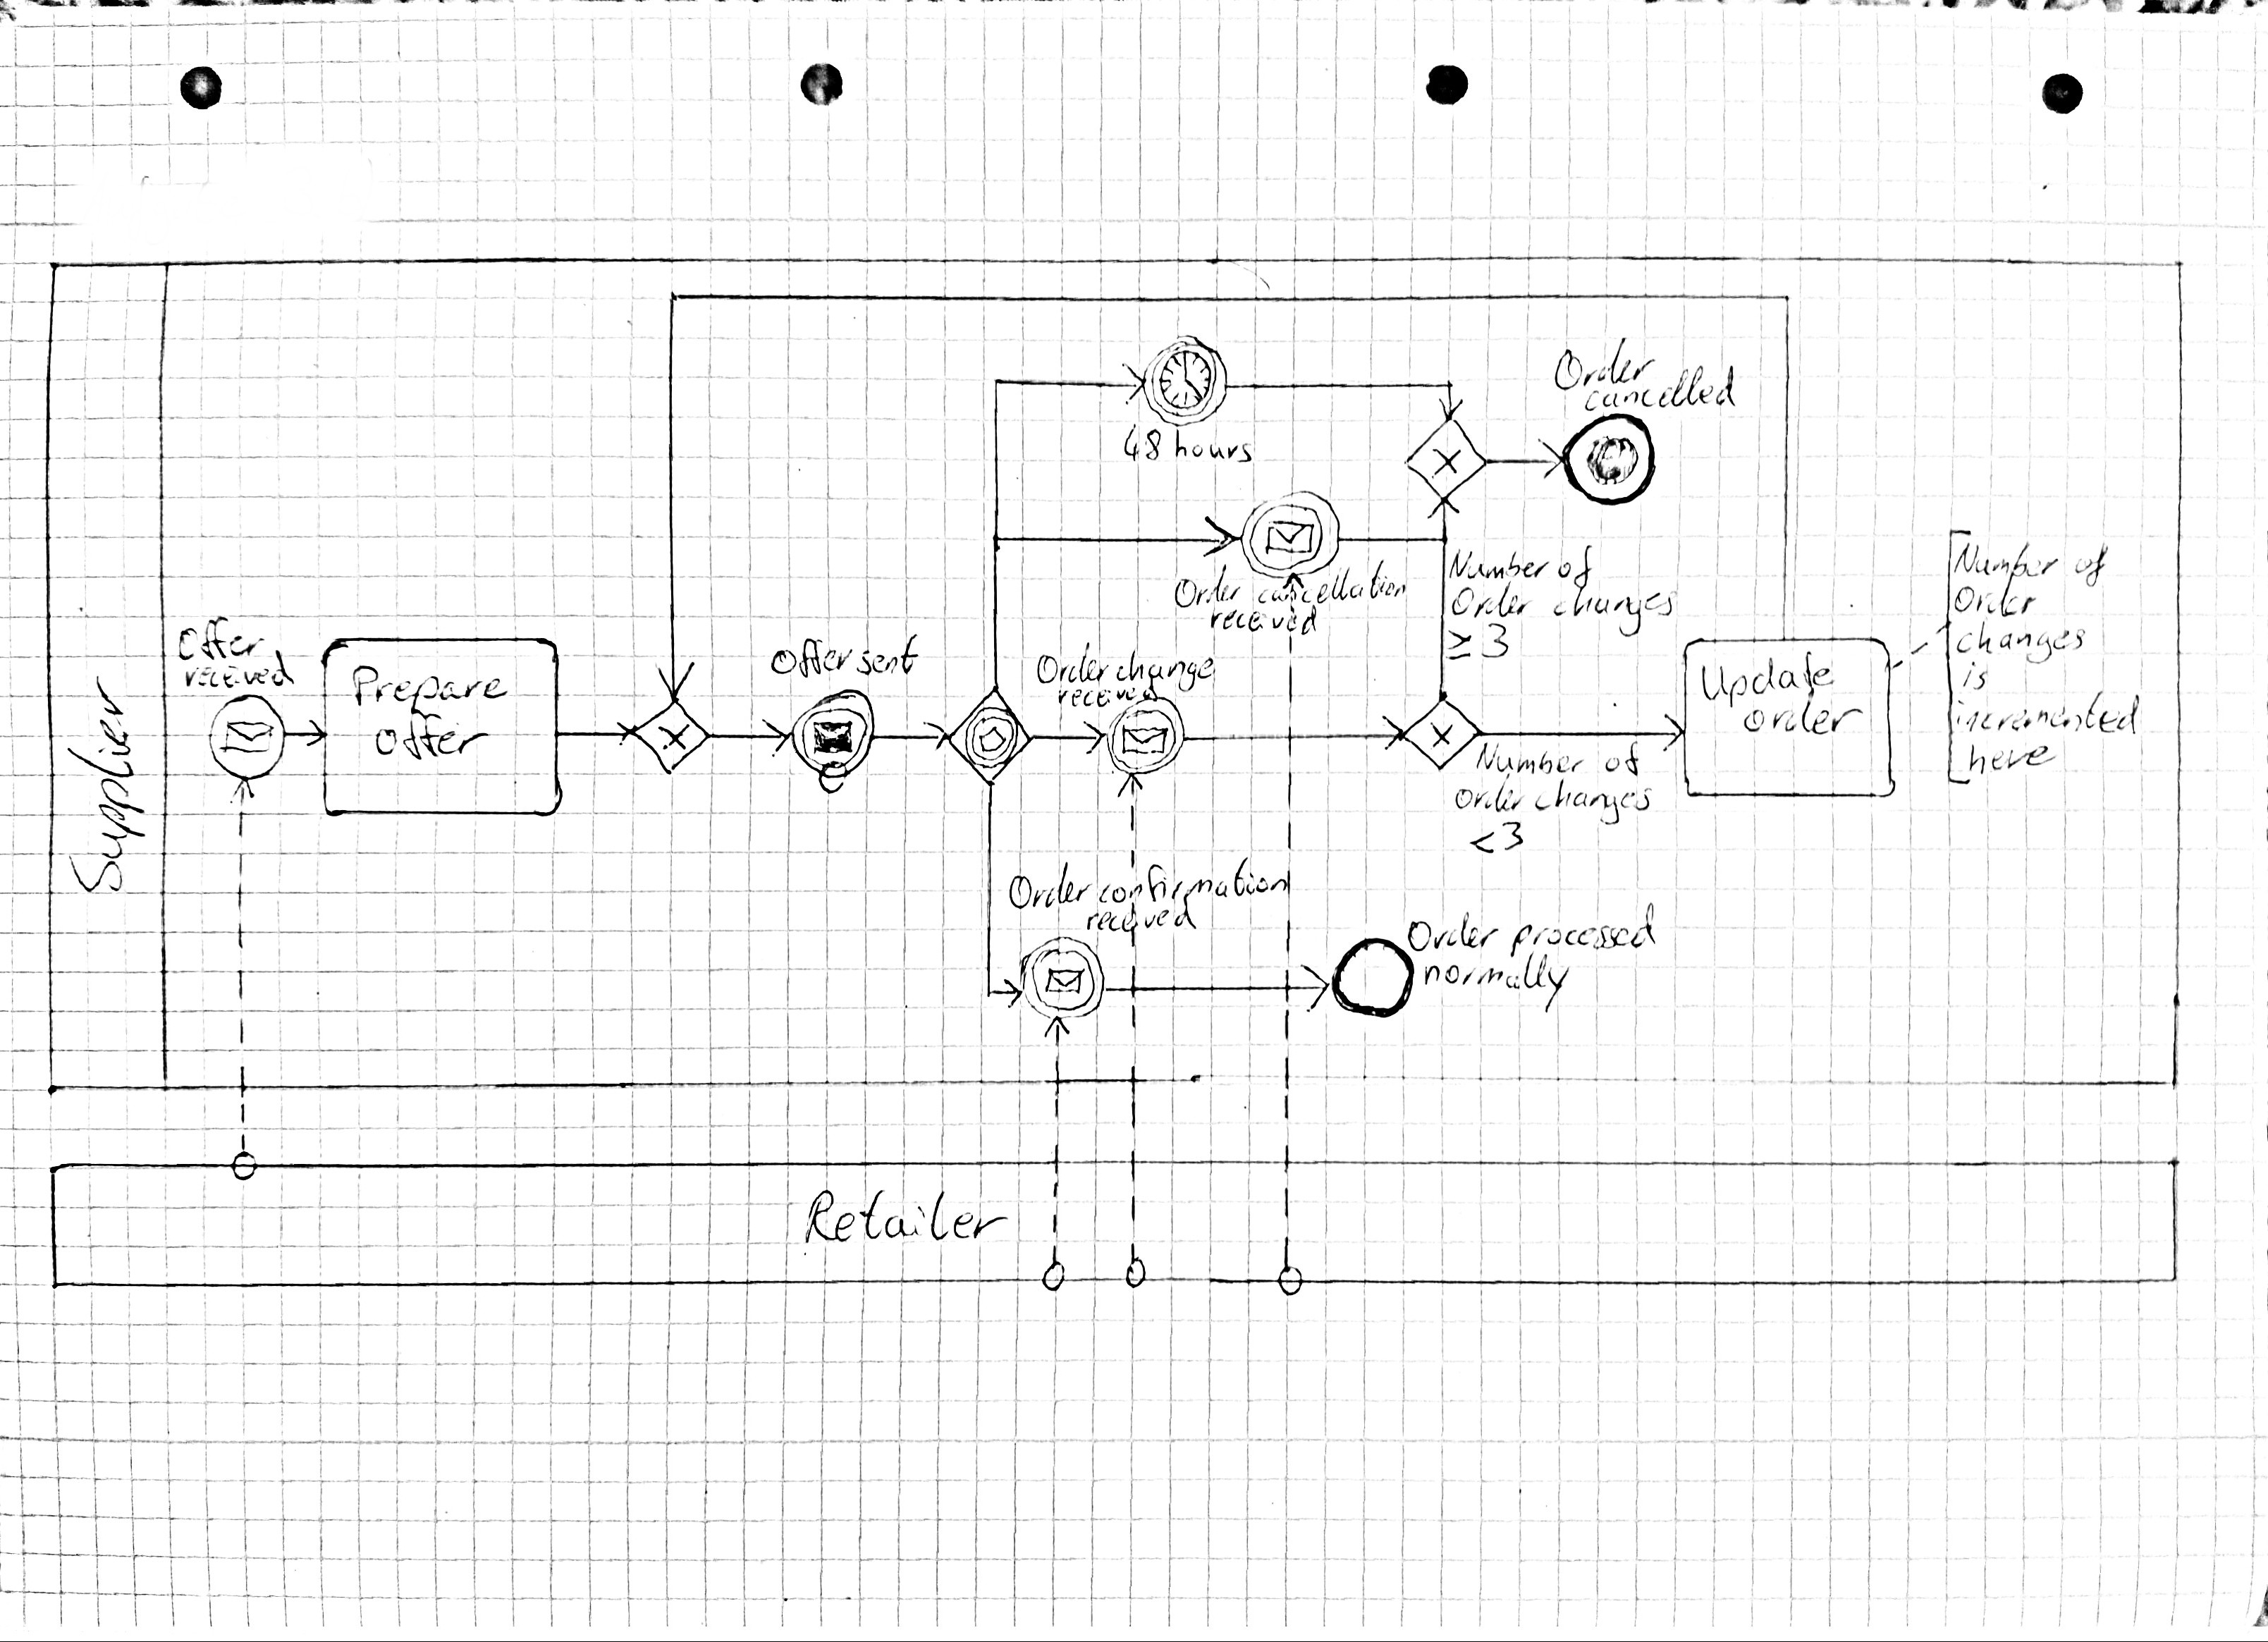 Supplier
Offer
received
Prepare
offer
Offer sent
48 hours
Order
cancelled
Order cancellation
received
Number of
Order changes
≥ 3
Order change
received
Number of
Order changes
<3
Update
order
Number of
Order
changes
is
incremented
here
Order confirmation
received
Order processed
normally
Retailer